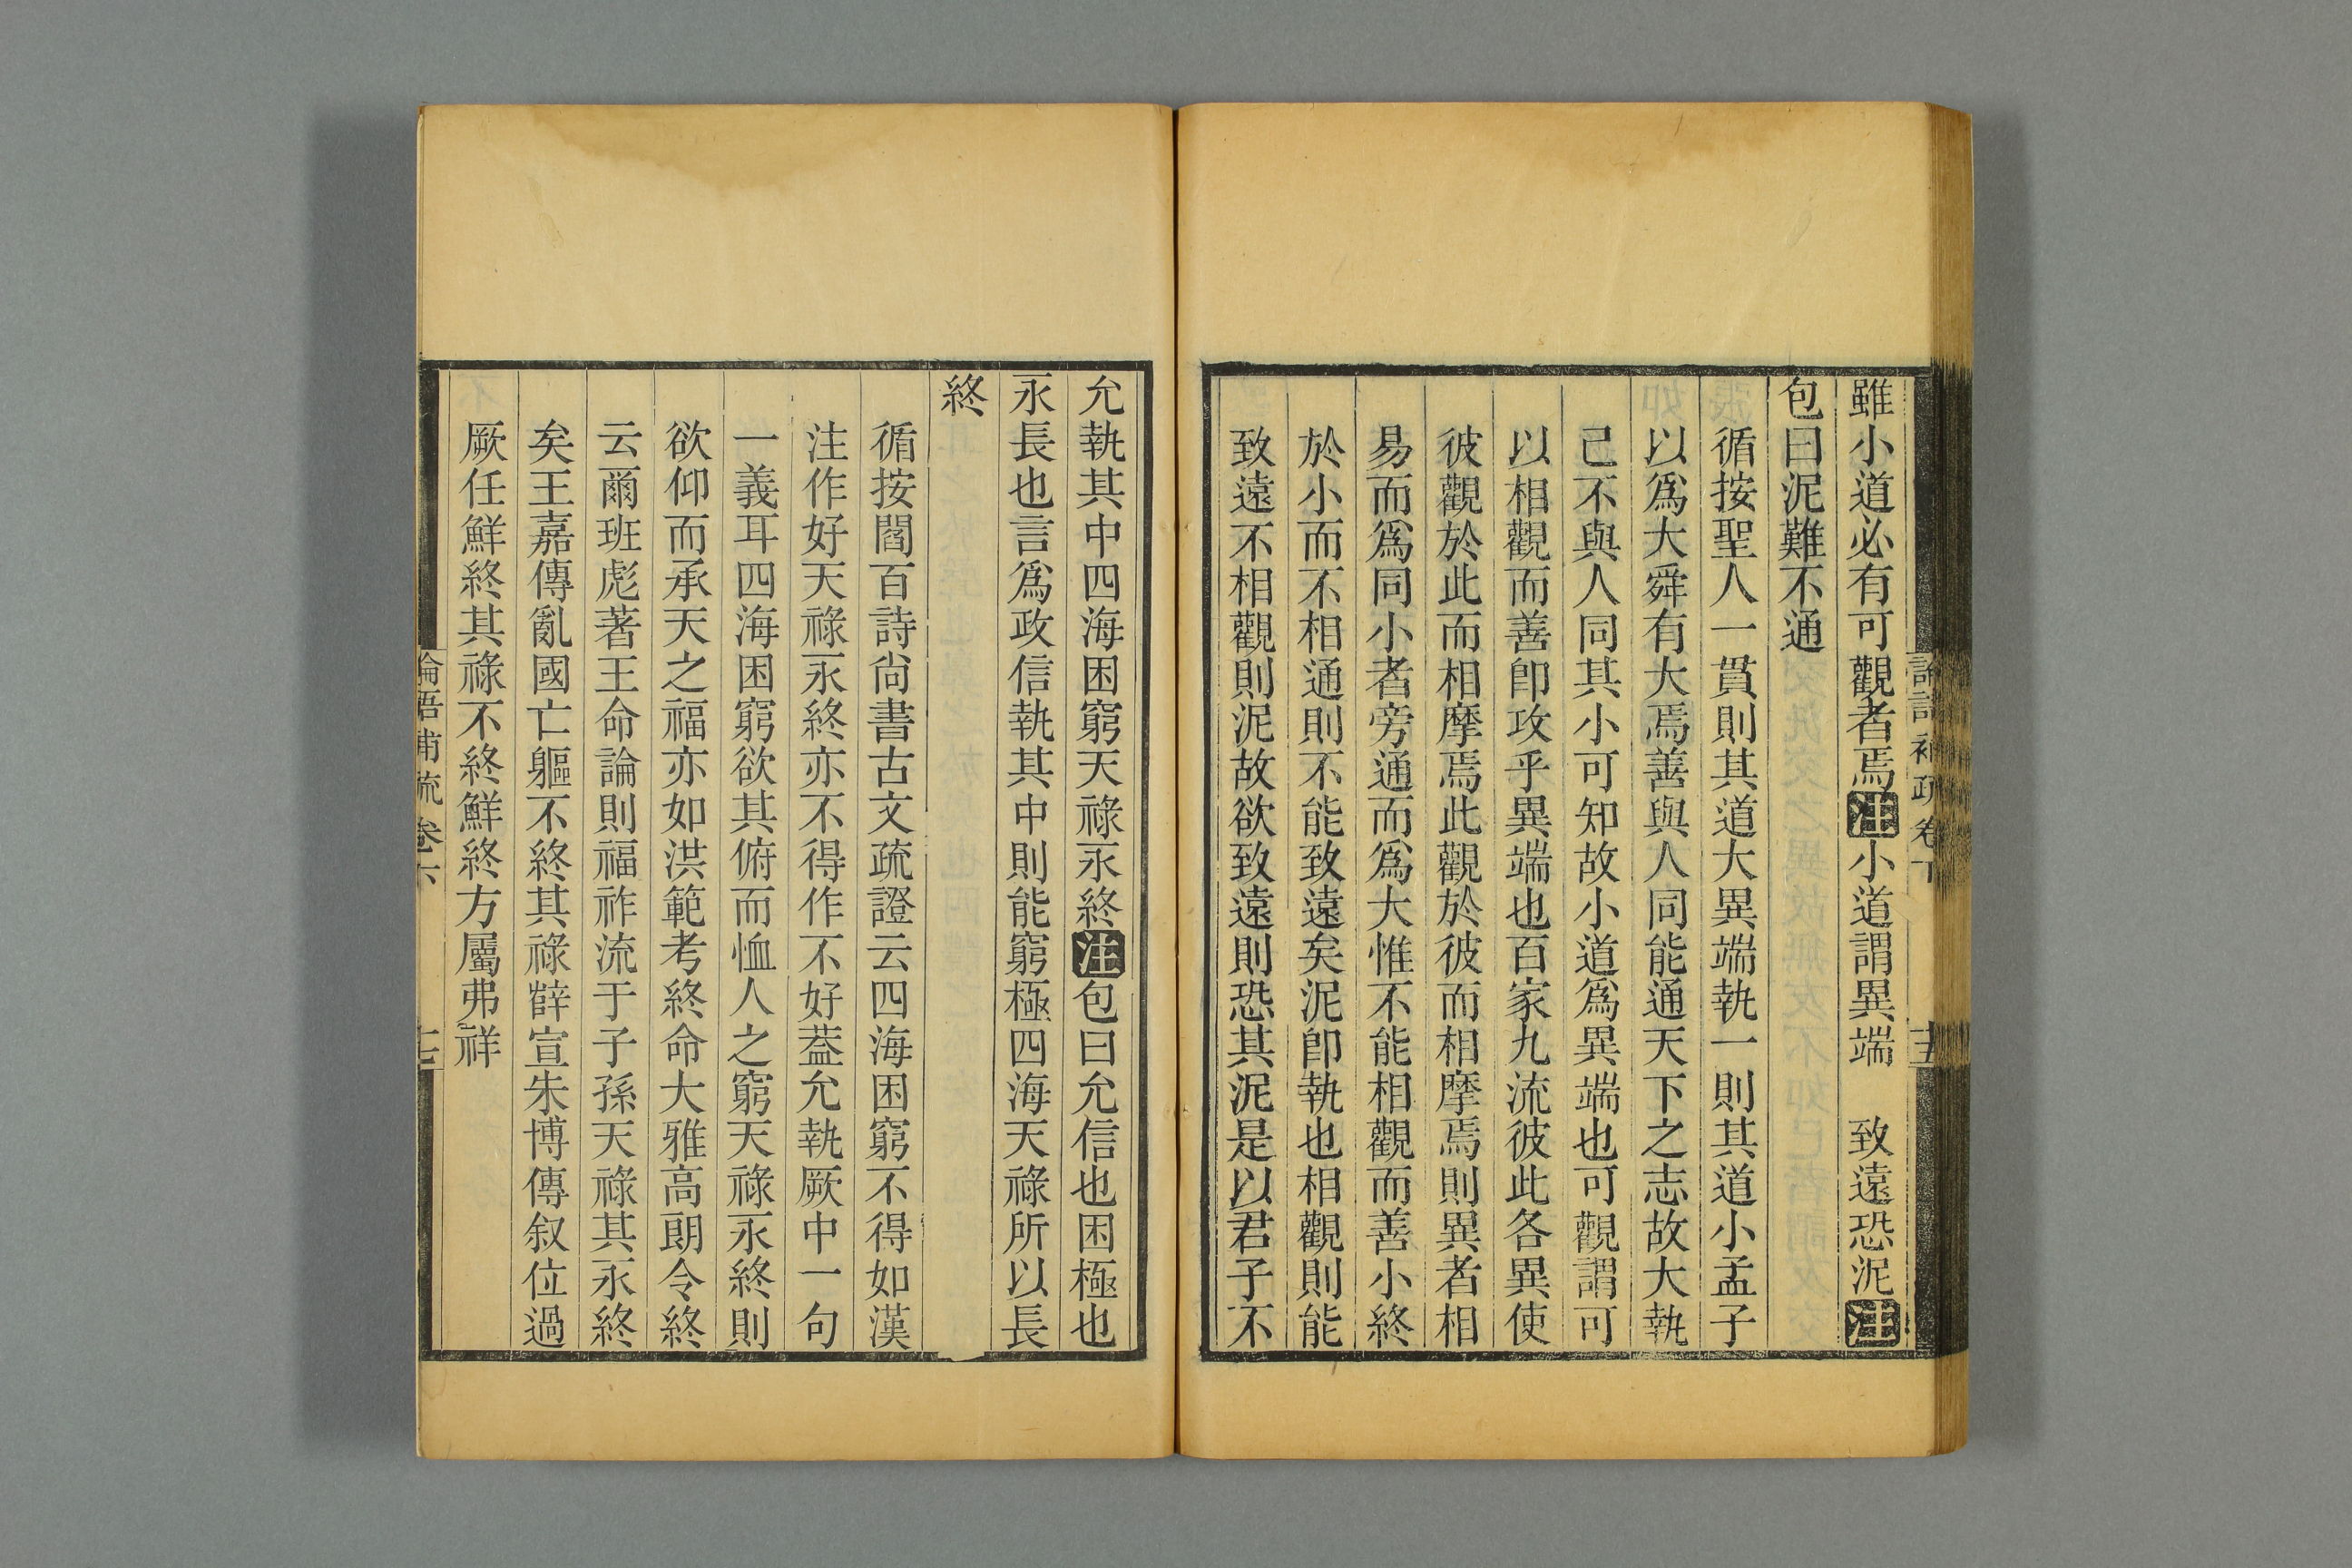 雖小道必有可觀者焉注小道謂異端　致遠恐泥注
包曰泥難不通
循按聖人一貫則其道大異端執一則其道小孟子
以爲大舜有大焉善與人同能通天下之志故大執
己不與人同其小可知故小道爲異端也可觀謂可
以相觀而善卽攻乎異端也百家九流彼此各異使
彼觀於此而相摩焉此觀於彼而相摩焉則異者相
易而爲同小者旁通而爲大惟不能相觀而善小終
於小而不相通則不能致遠矣泥卽執也相觀則能
致遠不相觀則泥故欲致遠則恐其泥是以君子不
允執其中四海困窮天祿永終注包曰允信也困極也
永長也言爲政信執其中則能窮極四海天祿所以長
終
循按閻百詩尙書古文疏證云四海困窮不得如漢
注作好天祿永終亦不得作不好葢允執厥中一句
一義耳四海困窮欲其俯而恤人之窮天祿永終則
欲仰而承天之福亦如洪範考終命大雅高朗令終
云爾班彪著王命論則福祚流于子孫天祿其永終
矣王嘉傳亂國亡軀不終其祿薛宣朱博傳叙位過
厥任鮮終其祿不終鮮終方屬弗祥